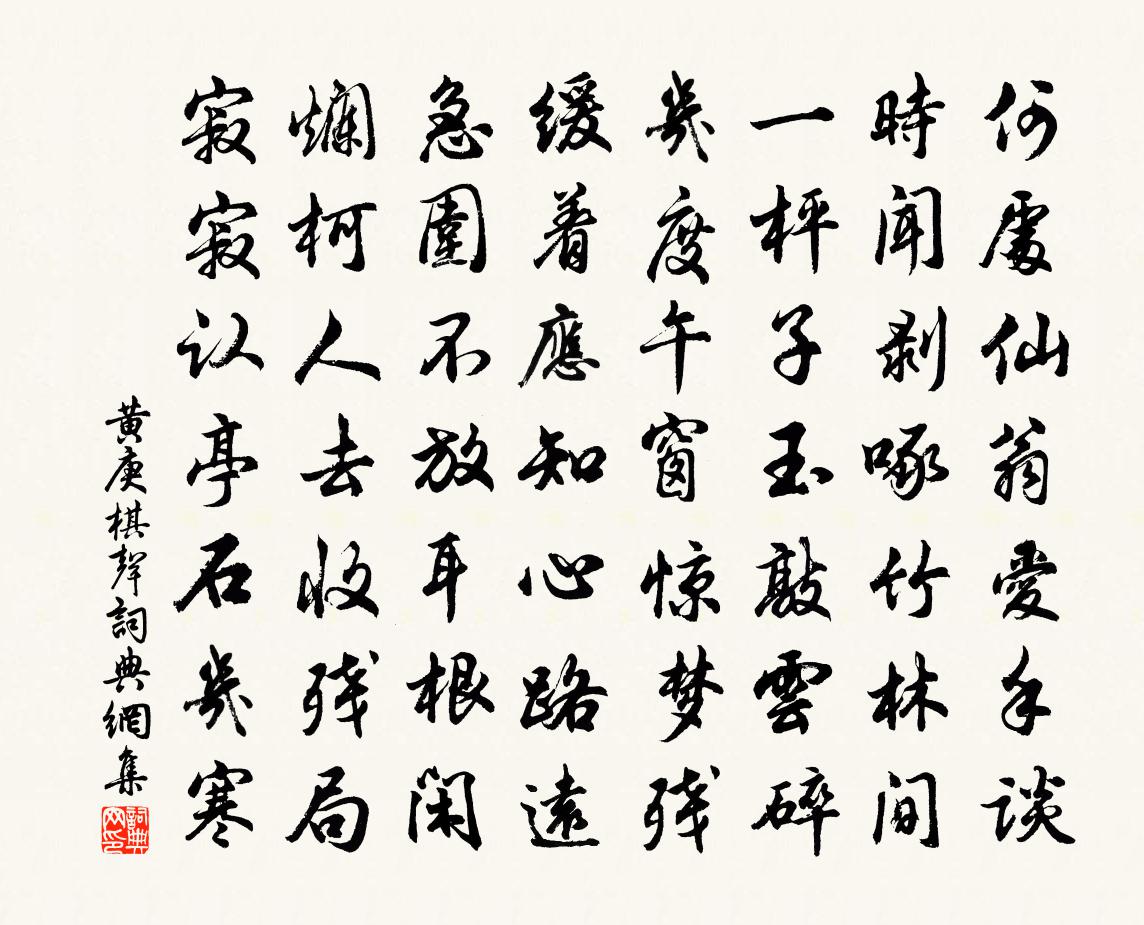 何處仙翁愛手谈
時聞剥啄竹林間
一枰子玉敲雲碎
幾度午窗惊梦残
緩着應知心路遠
急圍不放耳根閑
爛柯人去收残局
寂寂认亭石幾寒
黄庚棋聲詞典網集
詞典网印